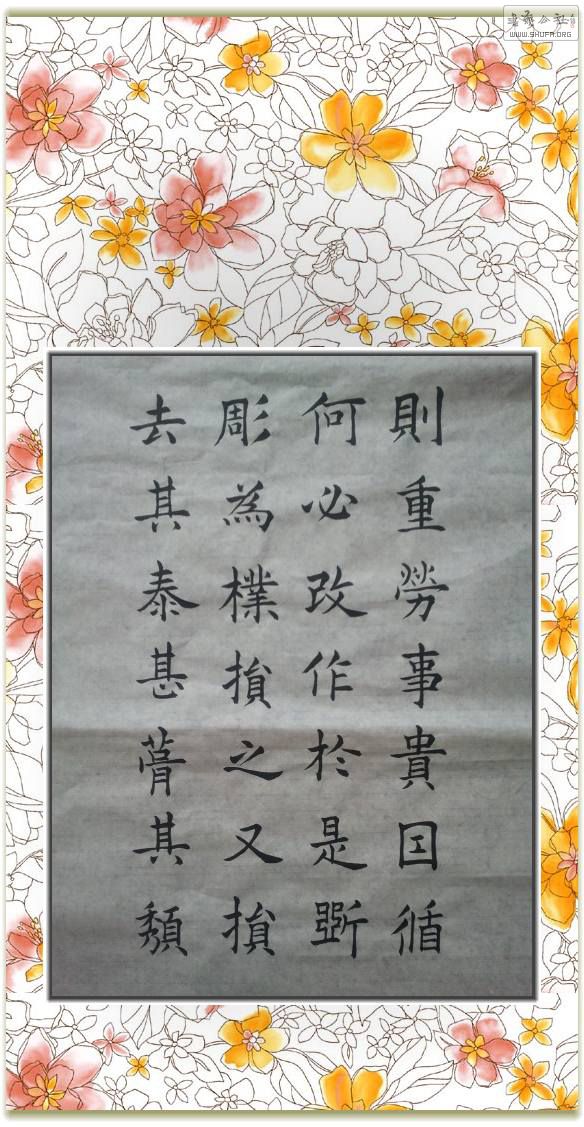 書藝公社
WWW.SHUFA.ORG
則重勞事貴囙循
何必改作於是斲
彫為樸損之又損
去其泰甚葺其頹